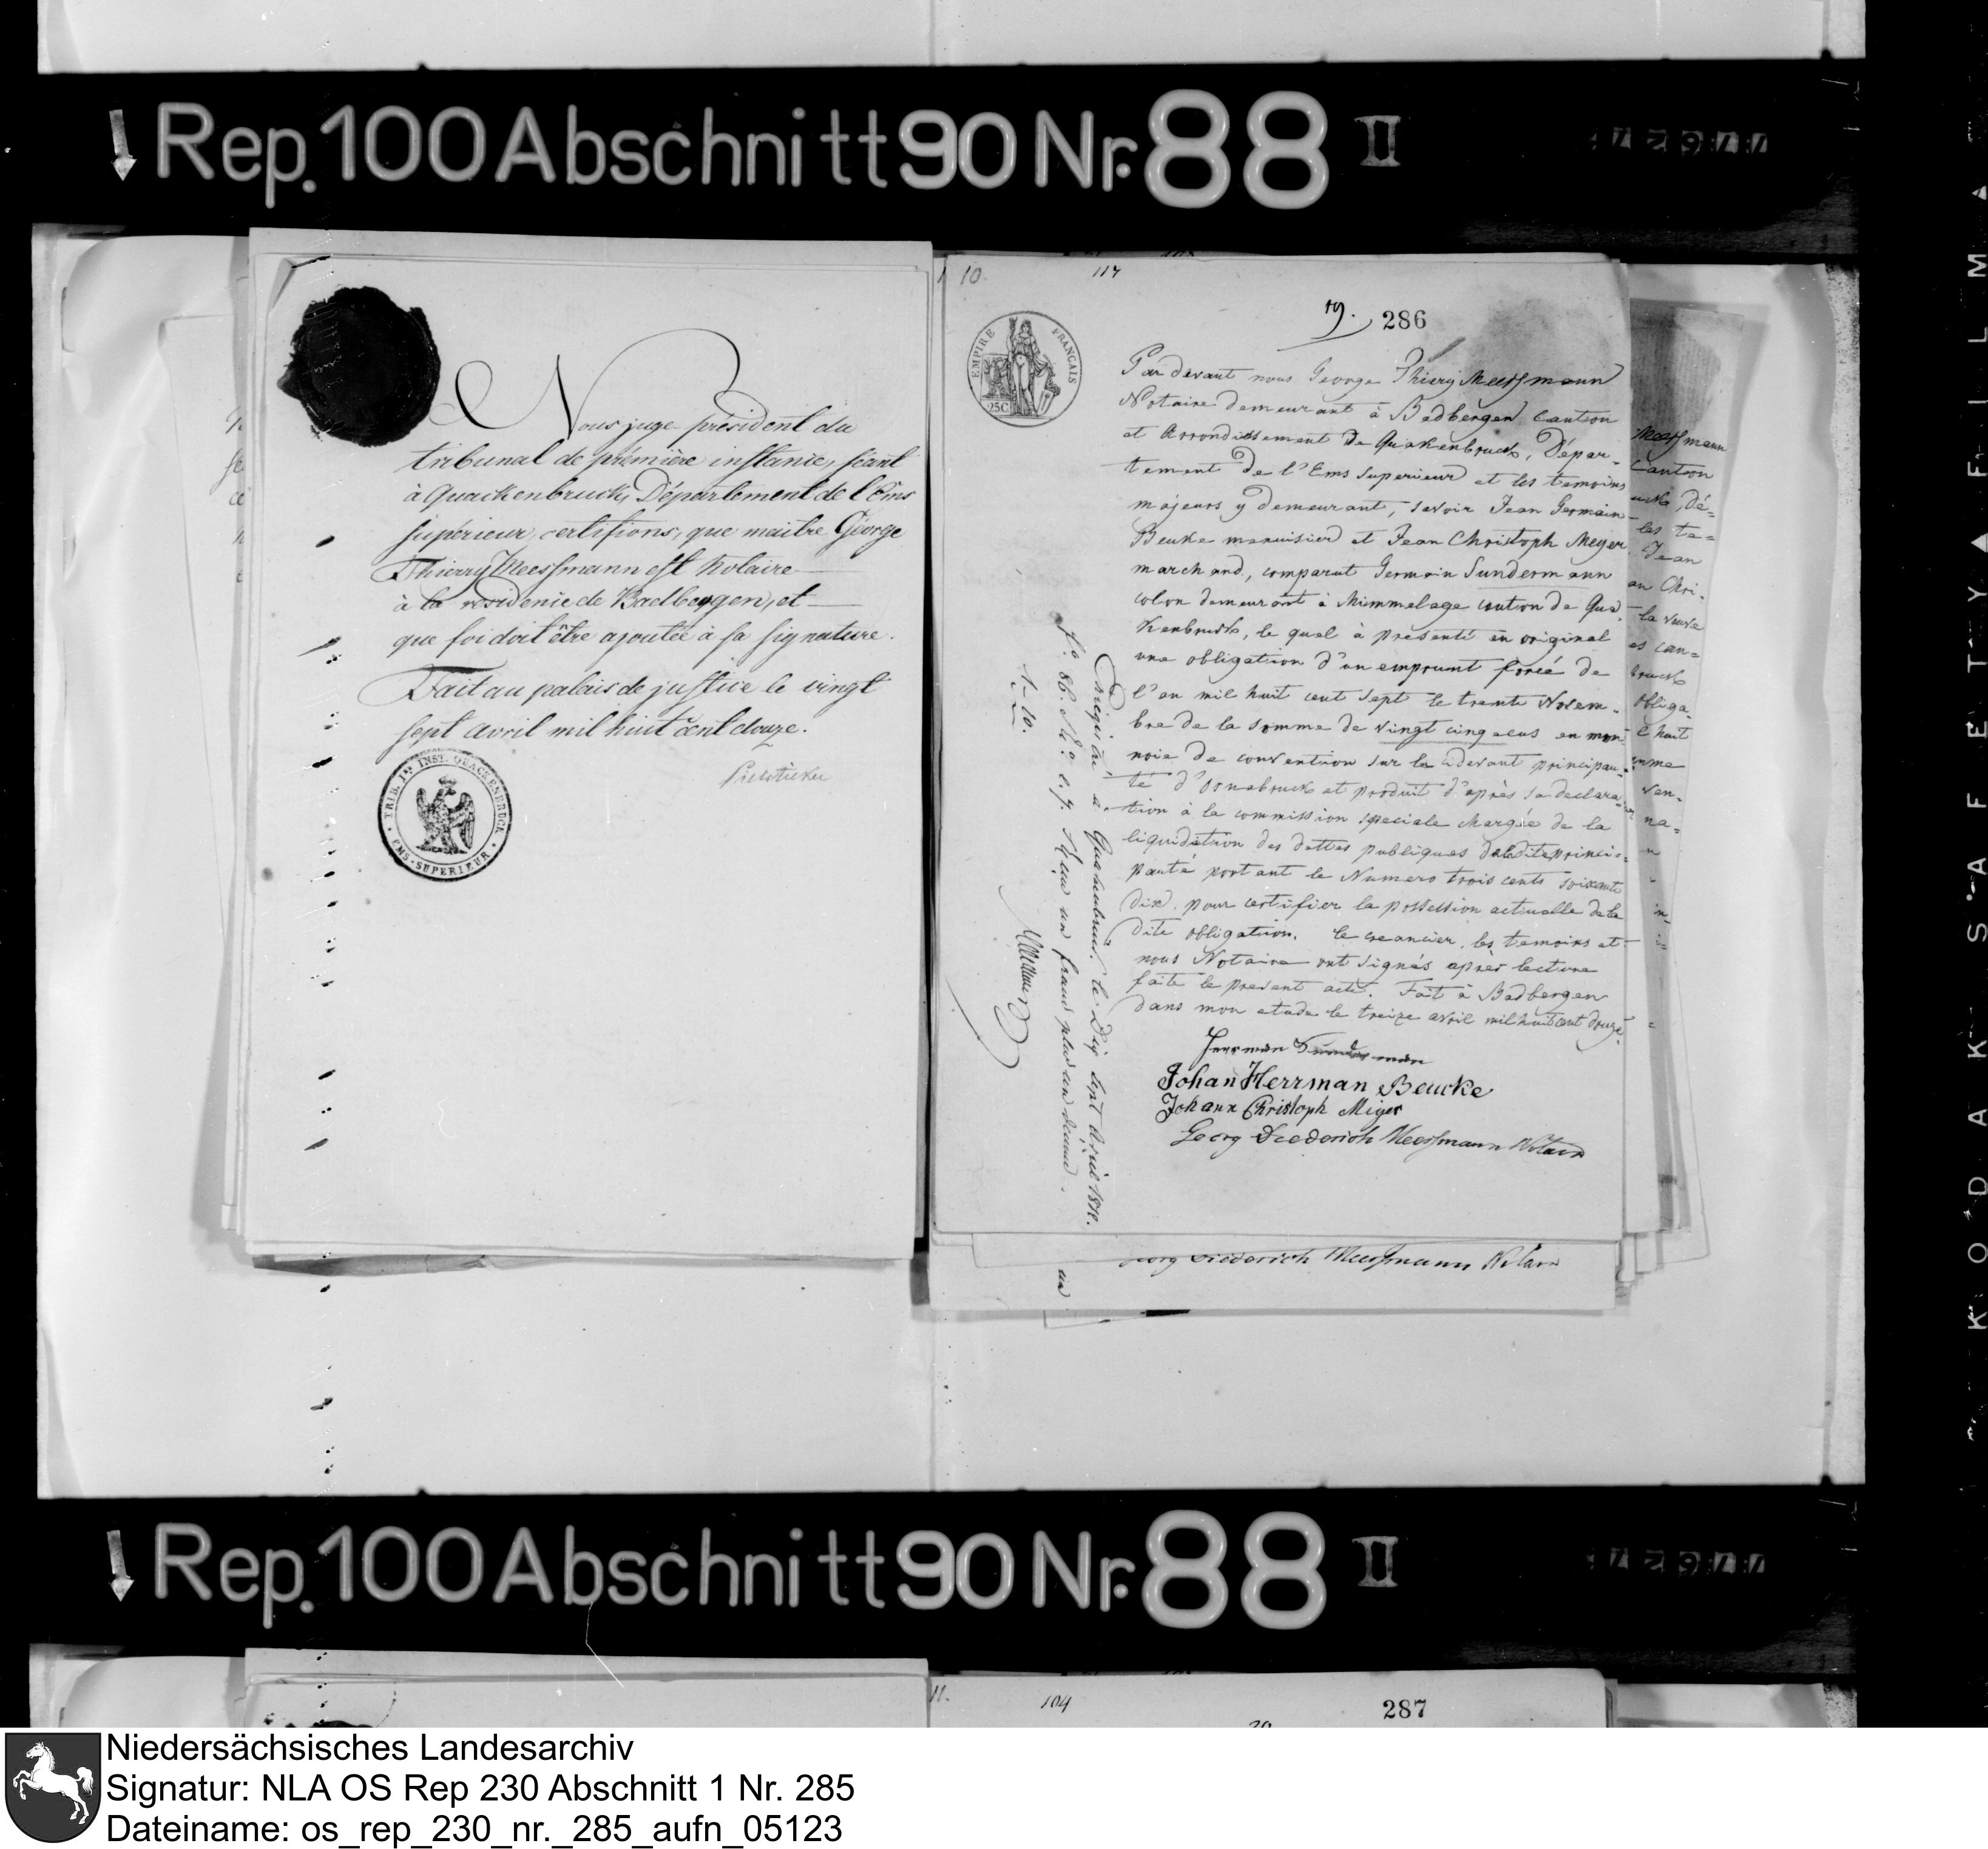 Rep. 100 Abschnitt 90 Nr. 88 II
Nous juge président du
tribunal de première instance, séant
à Quackenbruck, Département de l'Ems
supérieur, certifions, que maitre George
Thierry Meessmann est Notaire
à la residence de Badbergen, et
que foi doit être ajoutée à sa signature.
Fait au palais de justice le vingt
sept avril mil huit cent douze.
TRIB. 1re INST. QUACKENBRUCK
EMS-SUPERIEUR
10.
117
19.
286
EMPIRE FRANÇAIS
25C
Par devant nous George Thiery Meessmann
Notaire demeurant à Badbergen Canton
et Arrondissement de Quakenbruck, Dépar-
tement de l'Ems Superieur et les temoins
majeurs y demeurant, savoir Jean Germain
Beuke menuisier et Jean Christoph Meyer
marchand, comparut Germain Sundermann
colon demeurant à Mimmelage canton de Qua-
kenbruck, le quel à presenté en original
une obligation d'un emprunt forcé de
l'an mil huit cent sept le trente Novem-
bre de la somme de vingt cinq ecus en mon-
noie de convention sur la cidevant principau-
té d'Osnabruck et produit d'après sa declara-
tion à la commission speciale chargée de la
liquidation des dettes publiques de ladite princi-
pauté portant le Numero trois cents soixante
dix, pour certifier la possession actuelle de la
dite obligation. Le creancier, les temoins et
nous Notaire ont signés après lecture
faite le present acte. Fait à Badbergen
dans mon etude le treize avril mil huit cent douze.
Herrman Sunderman
Johan Herrman Beucke
Johann Christoph Meyer
Georg Diederich Meessmann Notair
Enregistré à Quakenbruck le dix sept avril 1812.
f.o 86. R.o c. 7. Reçu un franc plus un decime.
1-10.
Meessmann
Canton
uck, dé-
les te-
Jean
an Chri-
la veuve
es can-
bruck
obliga-
l huit
omme
Georg Diederich Meessmann Notair
Rep. 100 Abschnitt 90 Nr. 88 II
11.
104
287
KODAK SAFETY FILM
Niedersächsisches Landesarchiv
Signatur: NLA OS Rep 230 Abschnitt 1 Nr. 285
Dateiname: os_rep_230_nr._285_aufn_05123